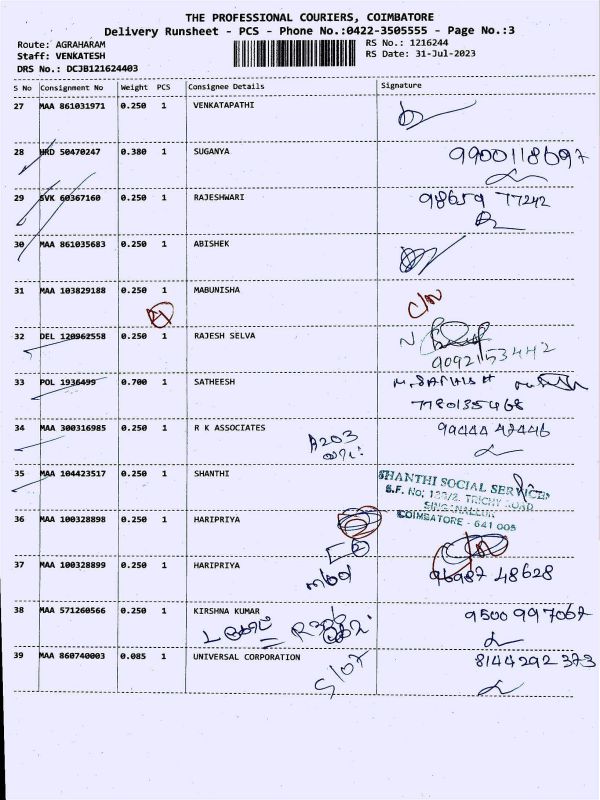 THE PROFESSIONAL COURIERS, COIMBATORE
Delivery Runsheet - PCS - Phone No.:0422-3505555 - Page No.:3
Route: AGRAHARAM
Staff: VENKATESH
DRS No.: DCJB121624403
RS No.: 1216244
RS Date: 31-Jul-2023
S No Consignment No Weight PCS Consignee Details Signature
27 MAA 861031971 0.250 1 VENKATAPATHI
28 HRD 50470247 0.380 1 SUGANYA 9900118697
29 SVK 60367160 0.250 1 RAJESHWARI 98659 77242
30 MAA 861035683 0.250 1 ABISHEK
31 MAA 103829188 0.250 1 MABUNISHA
32 DEL 120962558 0.250 1 RAJESH SELVA
9092153442
33 POL 1936499 0.700 1 SATHEESH
34 MAA 300316985 0.250 1 R K ASSOCIATES 99444 42446
A203
35 MAA 104423517 0.250 1 SHANTHI SHANTHI SOCIAL SERVICES
S.F. No; TRICHY ROAD
SINGANALLUR
COIMBATORE - 641 005
36 MAA 100328898 0.250 1 HARIPRIYA
37 MAA 100328899 0.250 1 HARIPRIYA 96987 48628
38 MAA 571260566 0.250 1 KIRSHNA KUMAR 9500997067
39 MAA 860740003 0.085 1 UNIVERSAL CORPORATION 8144292373